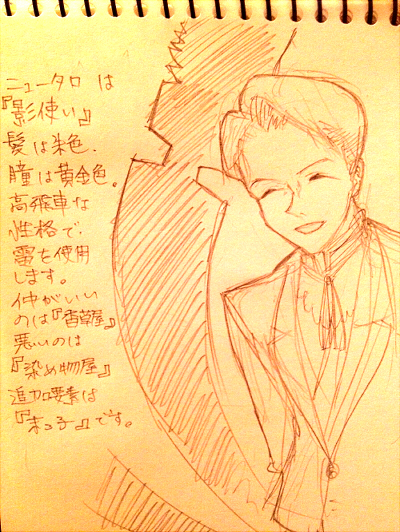 ニュータロ は
『影使い』
髪は朱色.
瞳は黄金色。
高飛車な
性格で、
雷を使用
します。
仲がいい
のは『香草屋』
悪いのは
『染め物屋』
追加要素は
『末っ子』です。